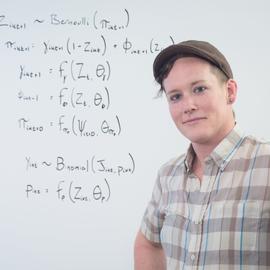 Zint+1 ~ Bernoulli(πint+1)
πint+1 = γint+1(1-Zint) + Φint+1(Z
γint+1 = fγ(Zt, Θγ)
Φint+1 = fΦ(Zt, ΘΦ)
πint=0 = fπ0(ψist=0, Θπ0)
yint ~ Binomial(Jint, pint)
pint = fp(Zint, Θp)